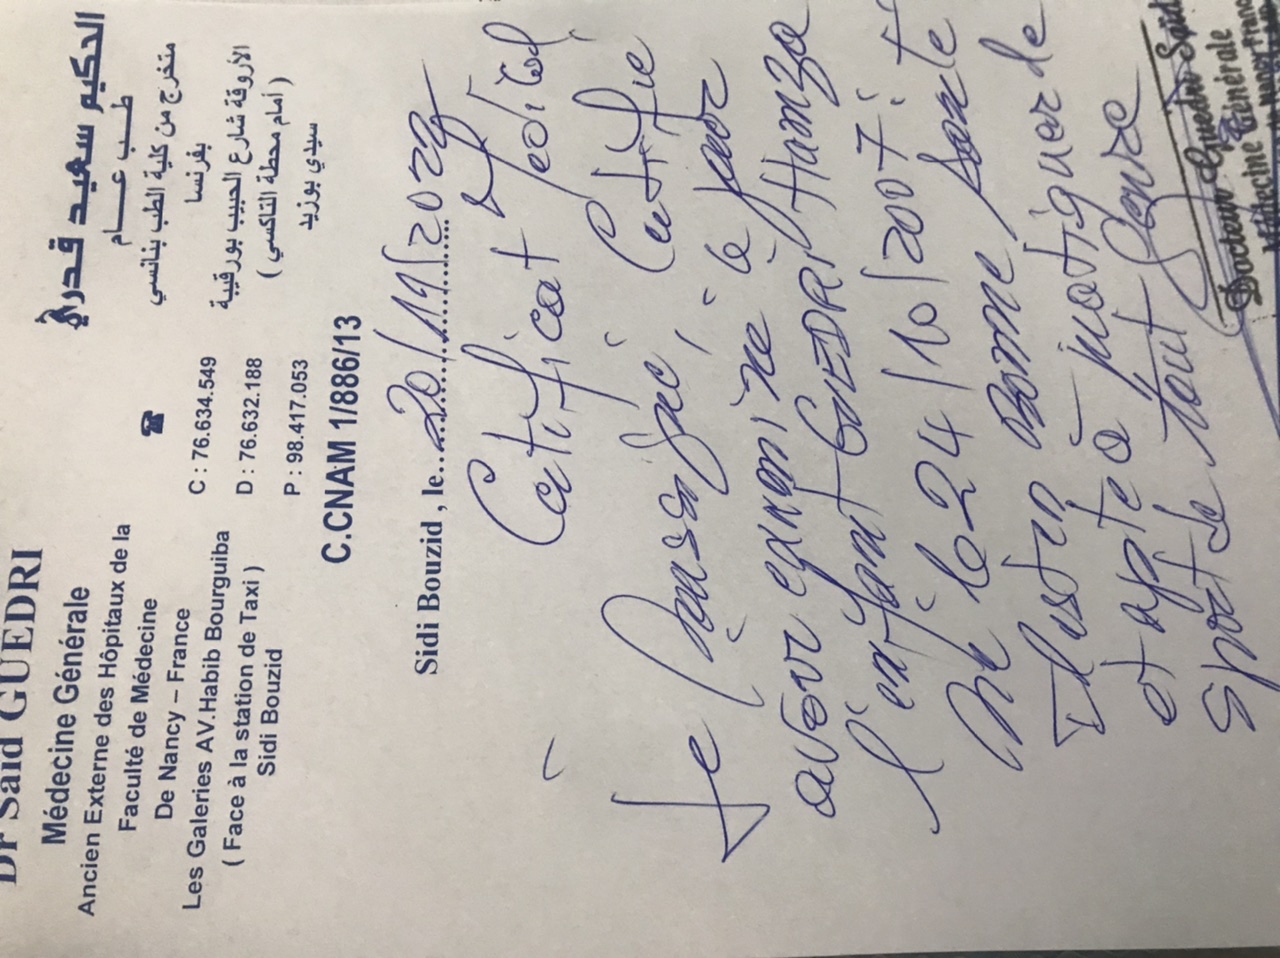 Dr Said GUEDRI
Médecine Générale
Ancien Externe des Hôpitaux de la
Faculté de Médecine
De Nancy – France
Les Galeries AV.Habib Bourguiba
( Face à la station de Taxi )
Sidi Bouzid
☎
C : 76.634.549
D : 76.632.188
P : 98.417.053
الحكيم سعيد قدري
طب عام
متخرج من كلية الطب بنانسي
بفرنسا
الأروقة شارع الحبيب بورقيبة
( أمام محطة التاكسي )
سيدي بوزيد
C.CNAM 1/886/13
Sidi Bouzid , le 20/11/2023
Certificat Medical
Je soussigné, Certifie
avoir examiné le jour
l'enfant GUEDRI Hamza
né le 24/10/2007.
Il est en Bonne santé
et apte à pratiquer de
sport de tout genre
Docteur Guedri Said
Médecine Générale